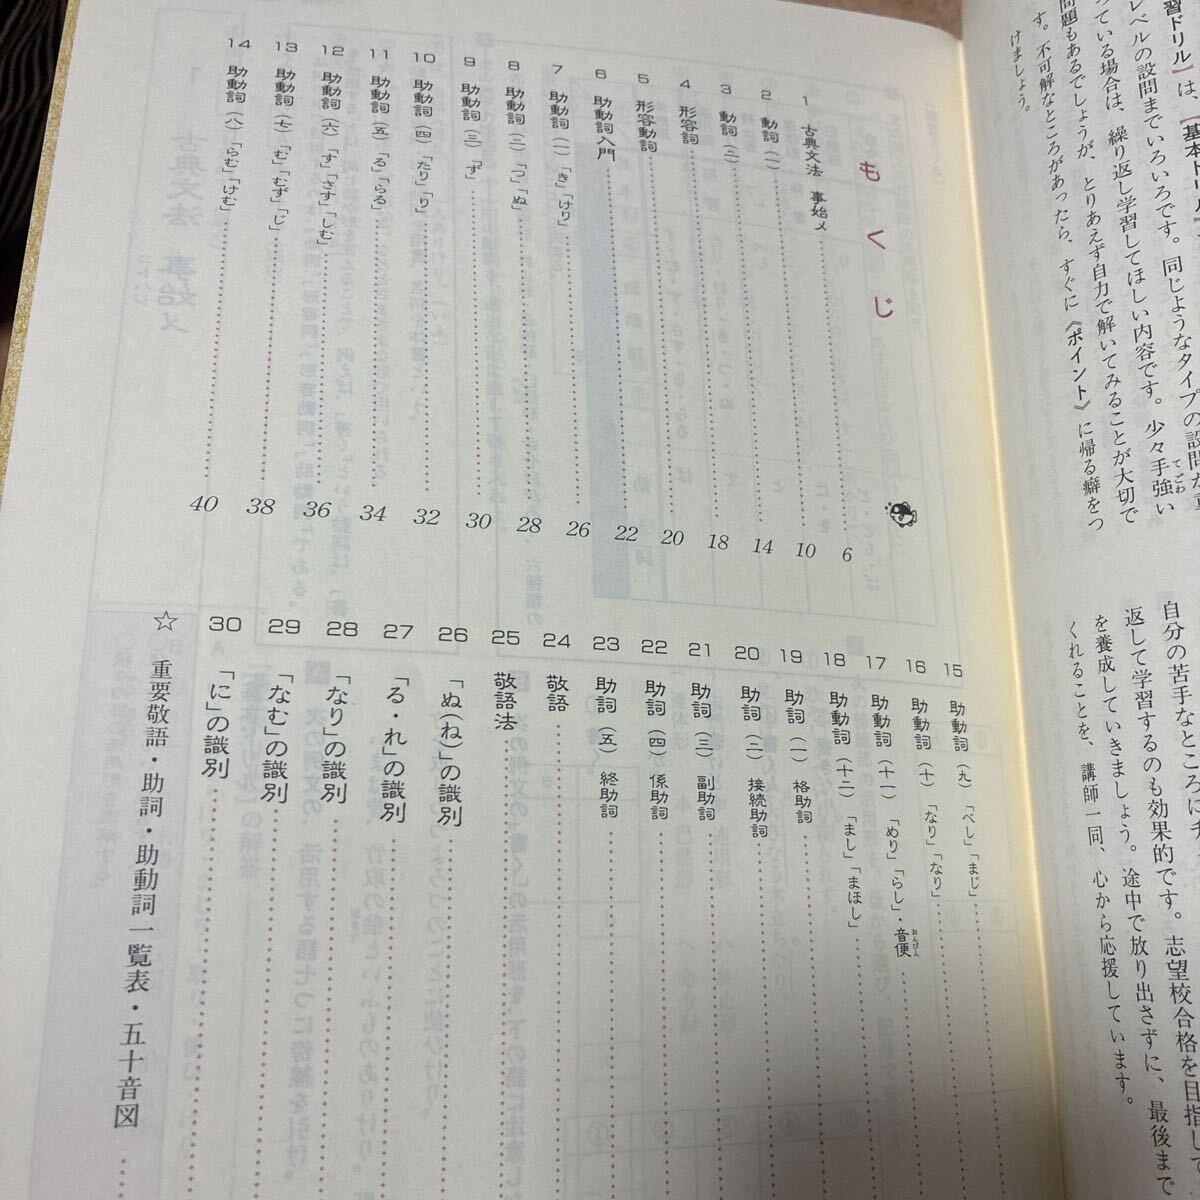 習ドリル】は、【基本ドリル】
レベルの設問までいろいろです。同じようなタイプの設問が
っている場合は、繰り返し学習してほしい内容です。少々手強い
てごわ
問題もあるでしょうが、とりあえず自力で解いてみることが大切で
す。不可解なところがあったら、すぐに《ポイント》に帰る癖をつ
けましょう。
自分の苦手なところに
返して学習するのも効果的です。志望校合格を目指して
を養成していきましょう。途中で放り出さずに、最後まで
くれることを、講師一同、心から応援しています。
もくじ
1 古典文法 事始メ 6
2 動詞(一) 10
3 動詞(二) 14
4 形容詞 18
5 形容動詞 20
6 助動詞入門 22
7 助動詞(一)「き」「けり」 26
8 助動詞(二)「つ」「ぬ」 28
9 助動詞(三)「ず」 30
10 助動詞(四)「たり」「り」 32
11 助動詞(五)「る」「らる」 34
12 助動詞(六)「す」「さす」「しむ」 36
13 助動詞(七)「む」「むず」「じ」 38
14 助動詞(八)「らむ」「けむ」 40
15 助動詞(九)「べし」「まじ」
16 助動詞(十)「なり」「なり」
17 助動詞(十一)「めり」「らし」・音便
おんびん
18 助動詞(十二)「まし」「まほし」
19 助詞(一)格助詞
20 助詞(二)接続助詞
21 助詞(三)副助詞
22 助詞(四)係助詞
23 助詞(五)終助詞
24 敬語
25 敬語法
26 「ぬ(ね)」の識別
27 「る・れ」の識別
28 「なり」の識別
29 「なむ」の識別
30 「に」の識別
☆ 重要敬語・助詞・助動詞一覧表・五十音図